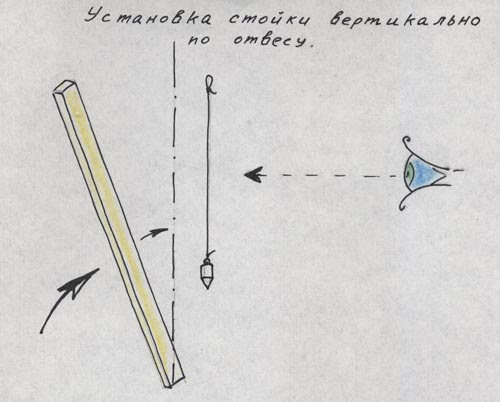 Установка стойки вертикально
по отвесу.